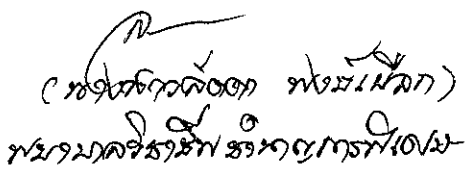 (นางสาวลัดดา พงษ์เผือก)
พยาบาลวิชาชีพชำนาญการพิเศษ